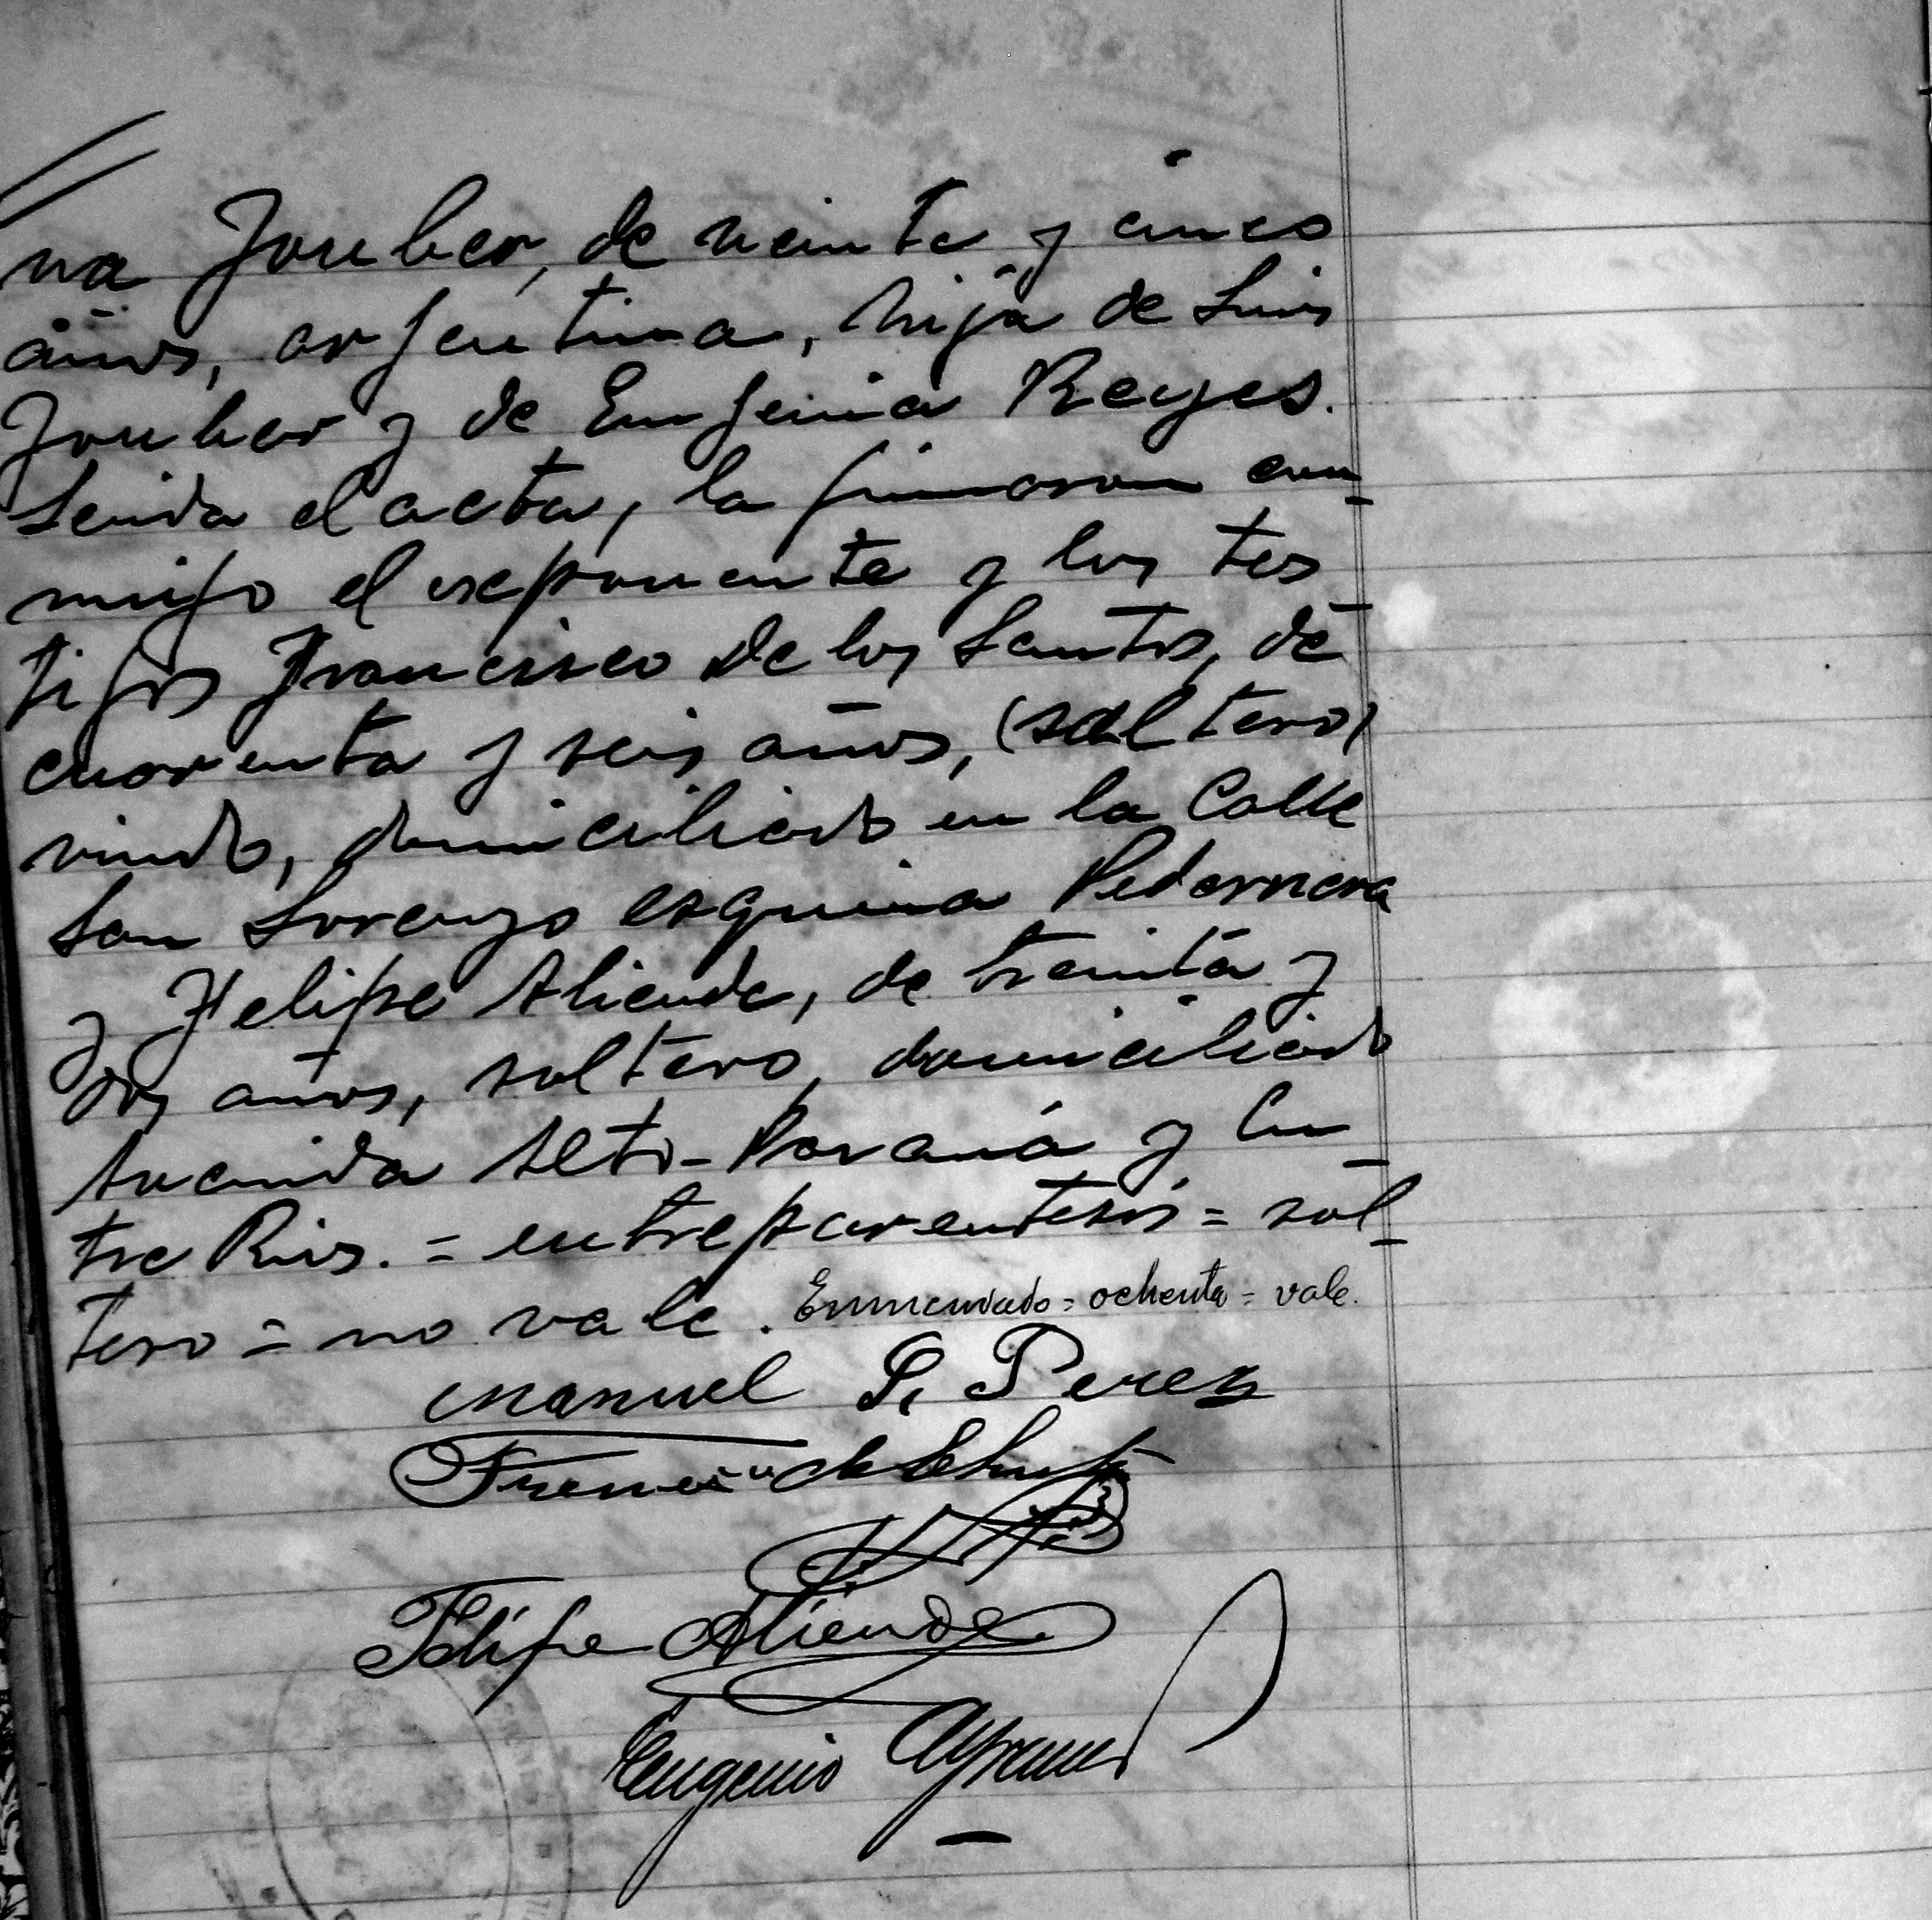 na Jouber, de veinte y cinco
años, argentina, hija de Luis
Jouber y de Eugenia Reyes.
Leida el acta, la firmaron con_
migo el exponente y los tes_
tigos Francisco de los Santos, de
cuarenta y seis años, (soltero)
viudo, domiciliado en la Calle
San Lorenzo esquina Pedernera
y Felipe Aliende, de treinta y
dos años, soltero, domiciliado
Avenida Alto-Paraná y En_
tre Rios. = entreparentesis = sol_
tero = no vale. Enmendado = ochenta = vale.
Manuel S. Perez
Francisco de los Santos
Felipe Aliende
Eugenio